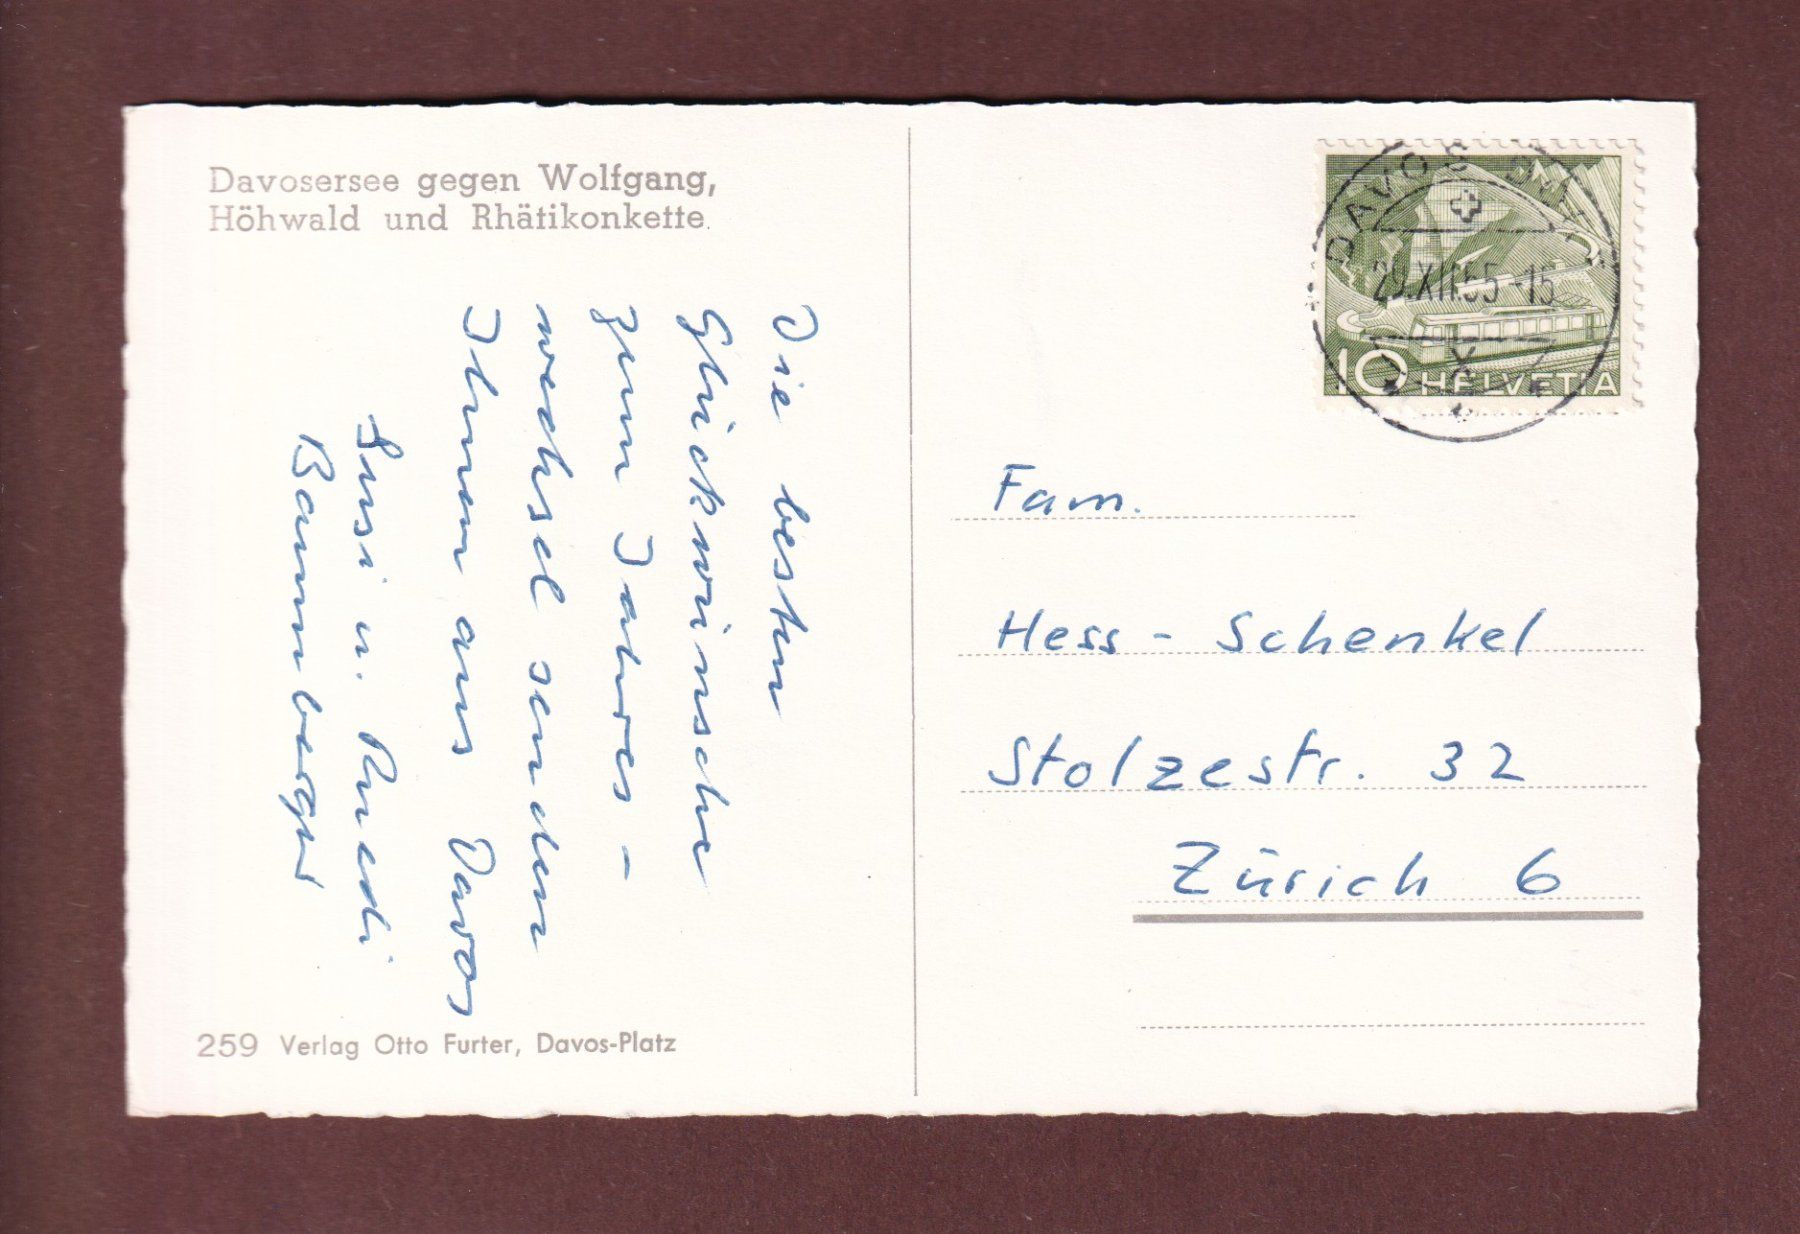 Davosersee gegen Wolfgang,
Höhwald und Rhätikonkette.
Die besten
Glückwünsche
zum Jahres-
wechsel senden
Ihnen aus Davos
Susi u. Ruedi
Bamberger
259 Verlag Otto Furter, Davos-Platz
DAVOS
XII.55-15
10 HELVETIA
Fam.
Hess - Schenkel
Stolzestr. 32
Zürich 6